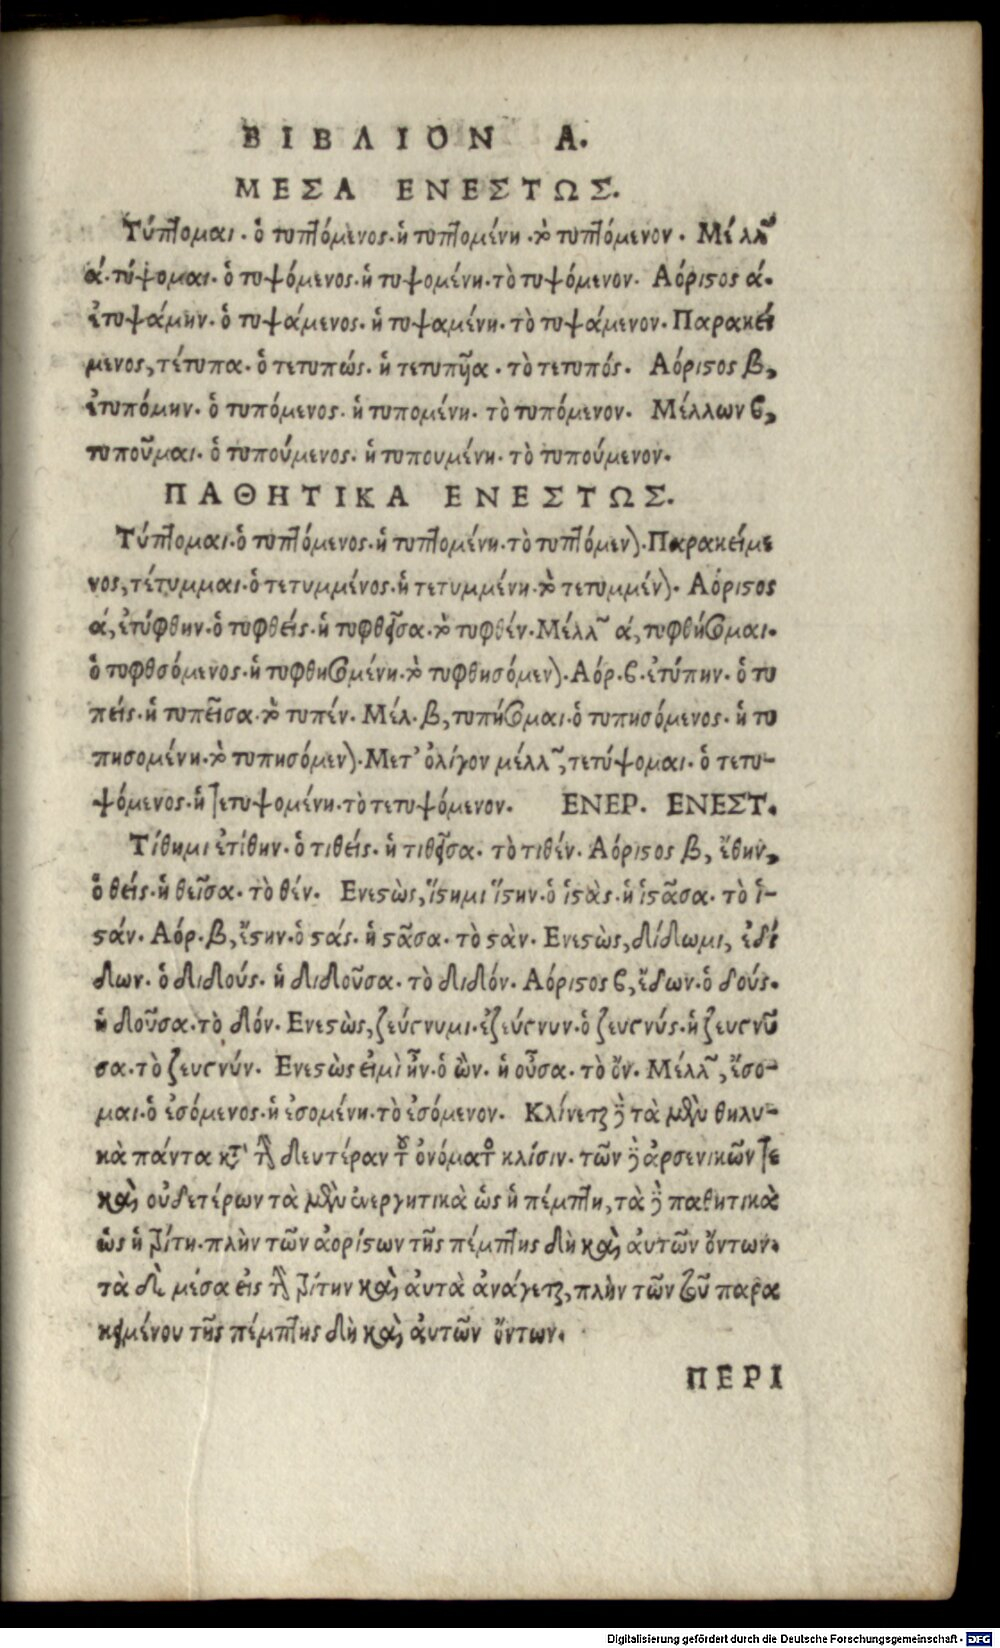 ΒΙΒΛΙΟΝ Α.
ΜΕΣΑ ΕΝΕΣΤΩΣ.
Τύπτομαι· ὁ τυπτόμενος· ἡ τυπτομένη· τὸ τυπτόμενον· Μέλλων
ά· τύψομαι· ὁ τυψόμενος· ἡ τυψομένη· τὸ τυψόμενον· Αόριϛος ά.
ἐτυψάμην· ὁ τυψάμενος· ἡ τυψαμένη· τὸ τυψάμενον· Παρακεί
μενος, τέτυπα· ὁ τετυπώς· ἡ τετυπῆα· τὸ τετυπός· Αόριϛος β,
ἐτυπόμην· ὁ τυπόμενος· ἡ τυπομένη· τὸ τυπόμενον· Μέλλων ϐ,
τυποῦμαι· ὁ τυπούμενος· ἡ τυπουμένη· τὸ τυπούμενον.
ΠΑΘΗΤΙΚΑ ΕΝΕΣΤΩΣ.
Τύπτομαι· ὁ τυπτόμενος· ἡ τυπτομένη· τὸ τυπτόμενον· Παρακείμε
νος, τέτυμμαι· ὁ τετυμμένος· ἡ τετυμμένη· τὸ τετυμμένον· Αόριϛος
ά, ἐτύφθην· ὁ τυφθείς· ἡ τυφθεῖσα· τὸ τυφθέν· Μέλλων ά, τυφθήσομαι·
ὁ τυφθσόμενος· ἡ τυφθησομένη· τὸ τυφθησόμενον· Αόρ· ϐ· ἐτύπην· ὁ τυ
πείς· ἡ τυπεῖσα· τὸ τυπέν· Μέλ· β, τυπήσομαι· ὁ τυπησόμενος· ἡ τυ
πησομένη· τὸ τυπησόμενον· Μετ' ὀλίγον μέλλων, τετύψομαι· ὁ τετυ-
ψόμενος· ἡ τετυψομένη· τὸ τετυψόμενον· ΕΝΕΡ. ΕΝΕΣΤ.
Τίθημι ἐτίθην· ὁ τιθείς· ἡ τιθεῖσα· τὸ τιθέν· Αόριϛος β, ἔθην,
ὁ θείς· ἡ θεῖσα· τὸ θέν· Ενεϛὼς, ἵϛημι ἵϛην· ὁ ἱϛὰς· ἡ ἱϛᾶσα· τὸ ἱ-
ϛάν· Αόρ· β, ἔϛην· ὁ ϛάς· ἡ ϛᾶσα· τὸ ϛὰν· Ενεϛὼς, δίδωμι, ἐδί
δων· ὁ διδούς· ἡ διδοῦσα· τὸ διδόν· Αόριϛος ϐ, ἔδων· ὁ δούς·
ἡ δοῦσα· τὸ δόν· Ενεϛὼς, ζεύγνυμι· ἐζεύγνυν· ὁ ζευγνύς· ἡ ζευγνῦ
σα· τὸ ζευγνύν· Ενεϛὼς εἰμὶ ἦν· ὁ ὢν· ἡ οὖσα· τὸ ὄν· Μέλλων, ἔσο-
μαι· ὁ ἐσόμενος· ἡ ἐσομένη· τὸ ἐσόμενον· Κλίνεται δὲ τὰ μὲν θηλυ-
κὰ πάντα κατὰ τὴν δευτέραν τῶν ὀνομάτων κλίσιν· τῶν δὲ ἀρσενικῶν τε
καὶ οὐδετέρων τὰ μὲν ἐνεργητικὰ ὡς ἡ πέμπτη, τὰ δὲ παθητικὰ
ὡς ἡ τρίτη· πλὴν τῶν ἀορίϛων τῆς πέμπτης δὴ καὶ αὐτῶν ὄντων·
τὰ δὲ μέσα εἰς τὴν τρίτην καὶ αὐτὰ ἀνάγεται, πλὴν τῶν τοῦ παρα
κειμένου τῆς πέμπτης δὴ καὶ αὐτῶν ὄντων·
ΠΕΡΙ
Digitalisierung gefördert durch die Deutsche Forschungsgemeinschaft - DFG